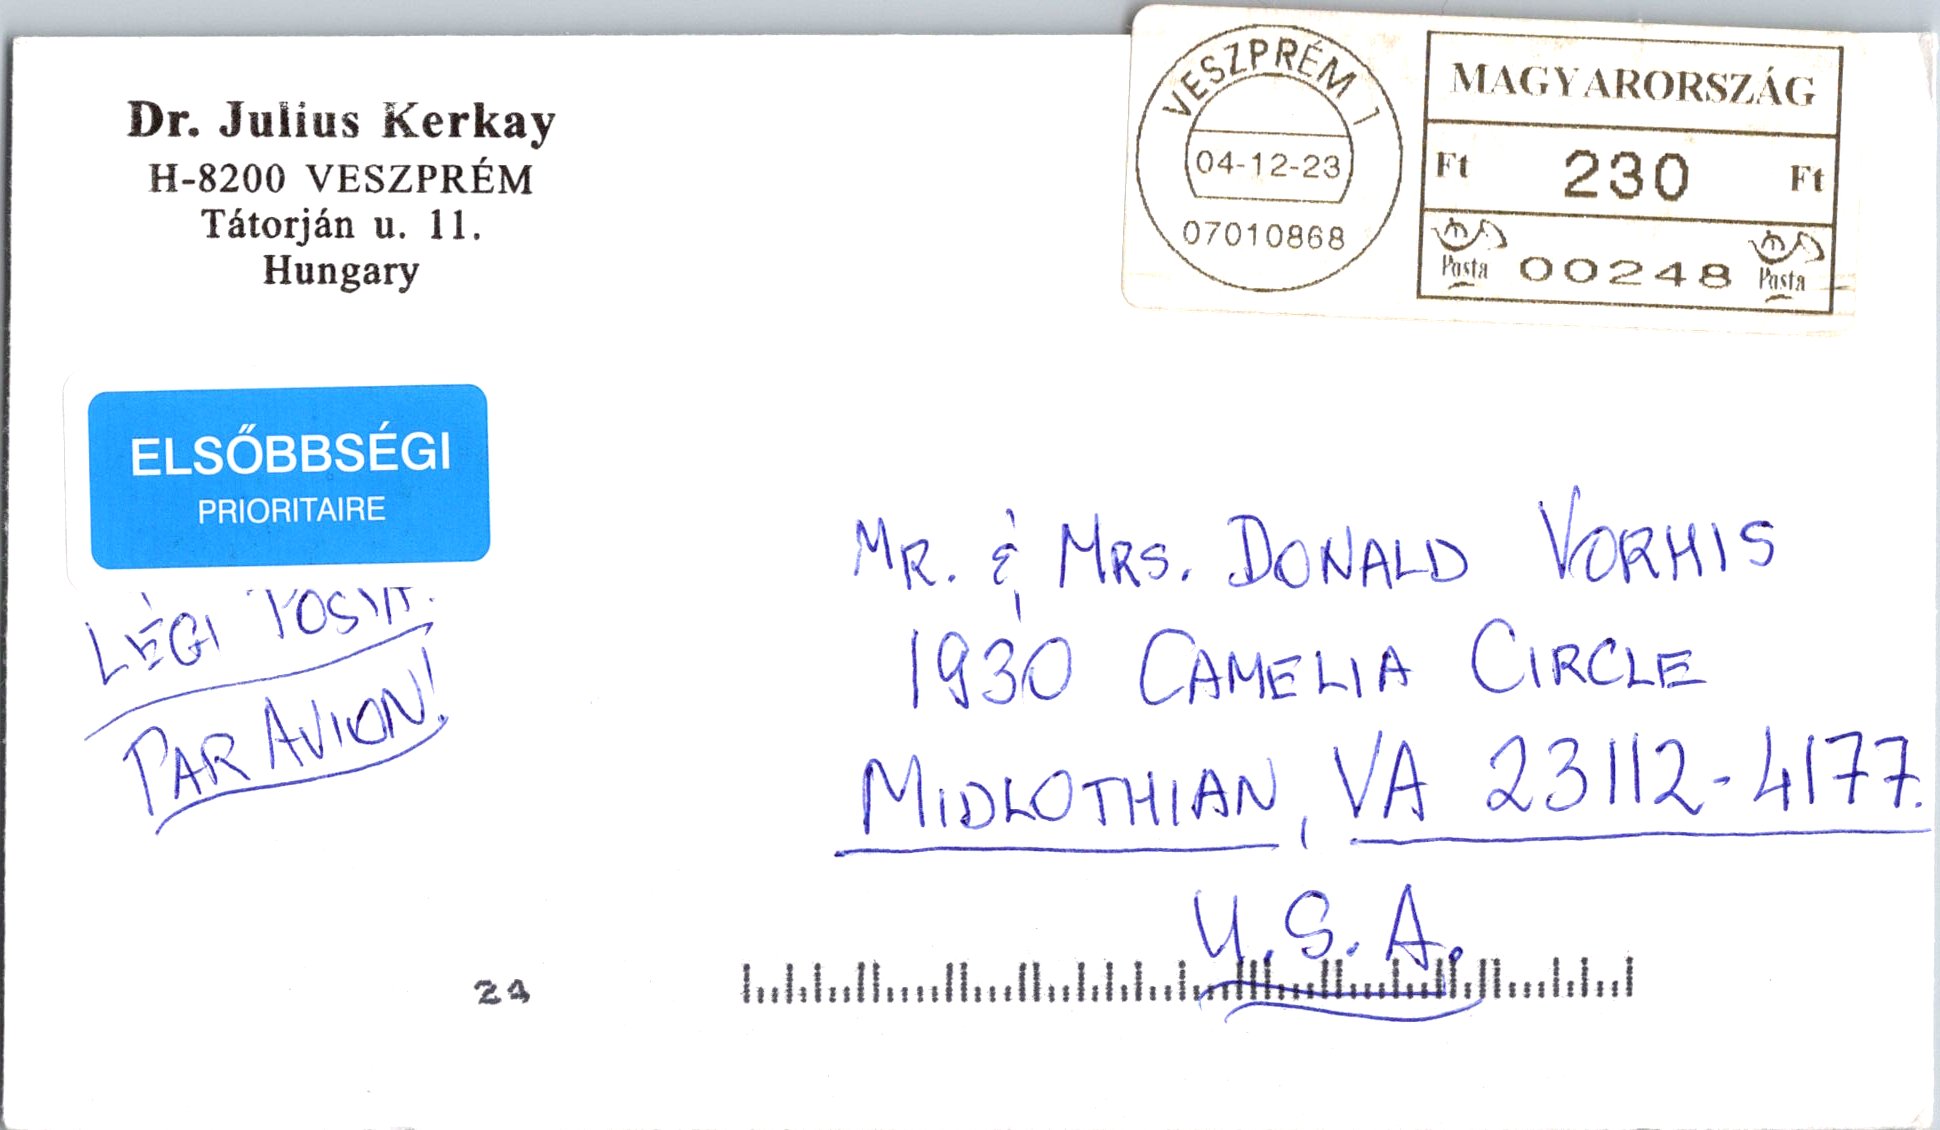 Dr. Julius Kerkay
H-8200 VESZPRÉM
Tátorján u. 11.
Hungary
VESZPRÉM 1
04-12-23
07010868
MAGYARORSZÁG
Ft 230 Ft
Posta 00248 Posta
ELSŐBBSÉGI
PRIORITAIRE
LÉGI
PAR AVION!
MR. & MRS. DONALD VORHIS
1930 CAMELIA CIRCLE
MIDLOTHIAN, VA 23112-4177.
U.S.A.